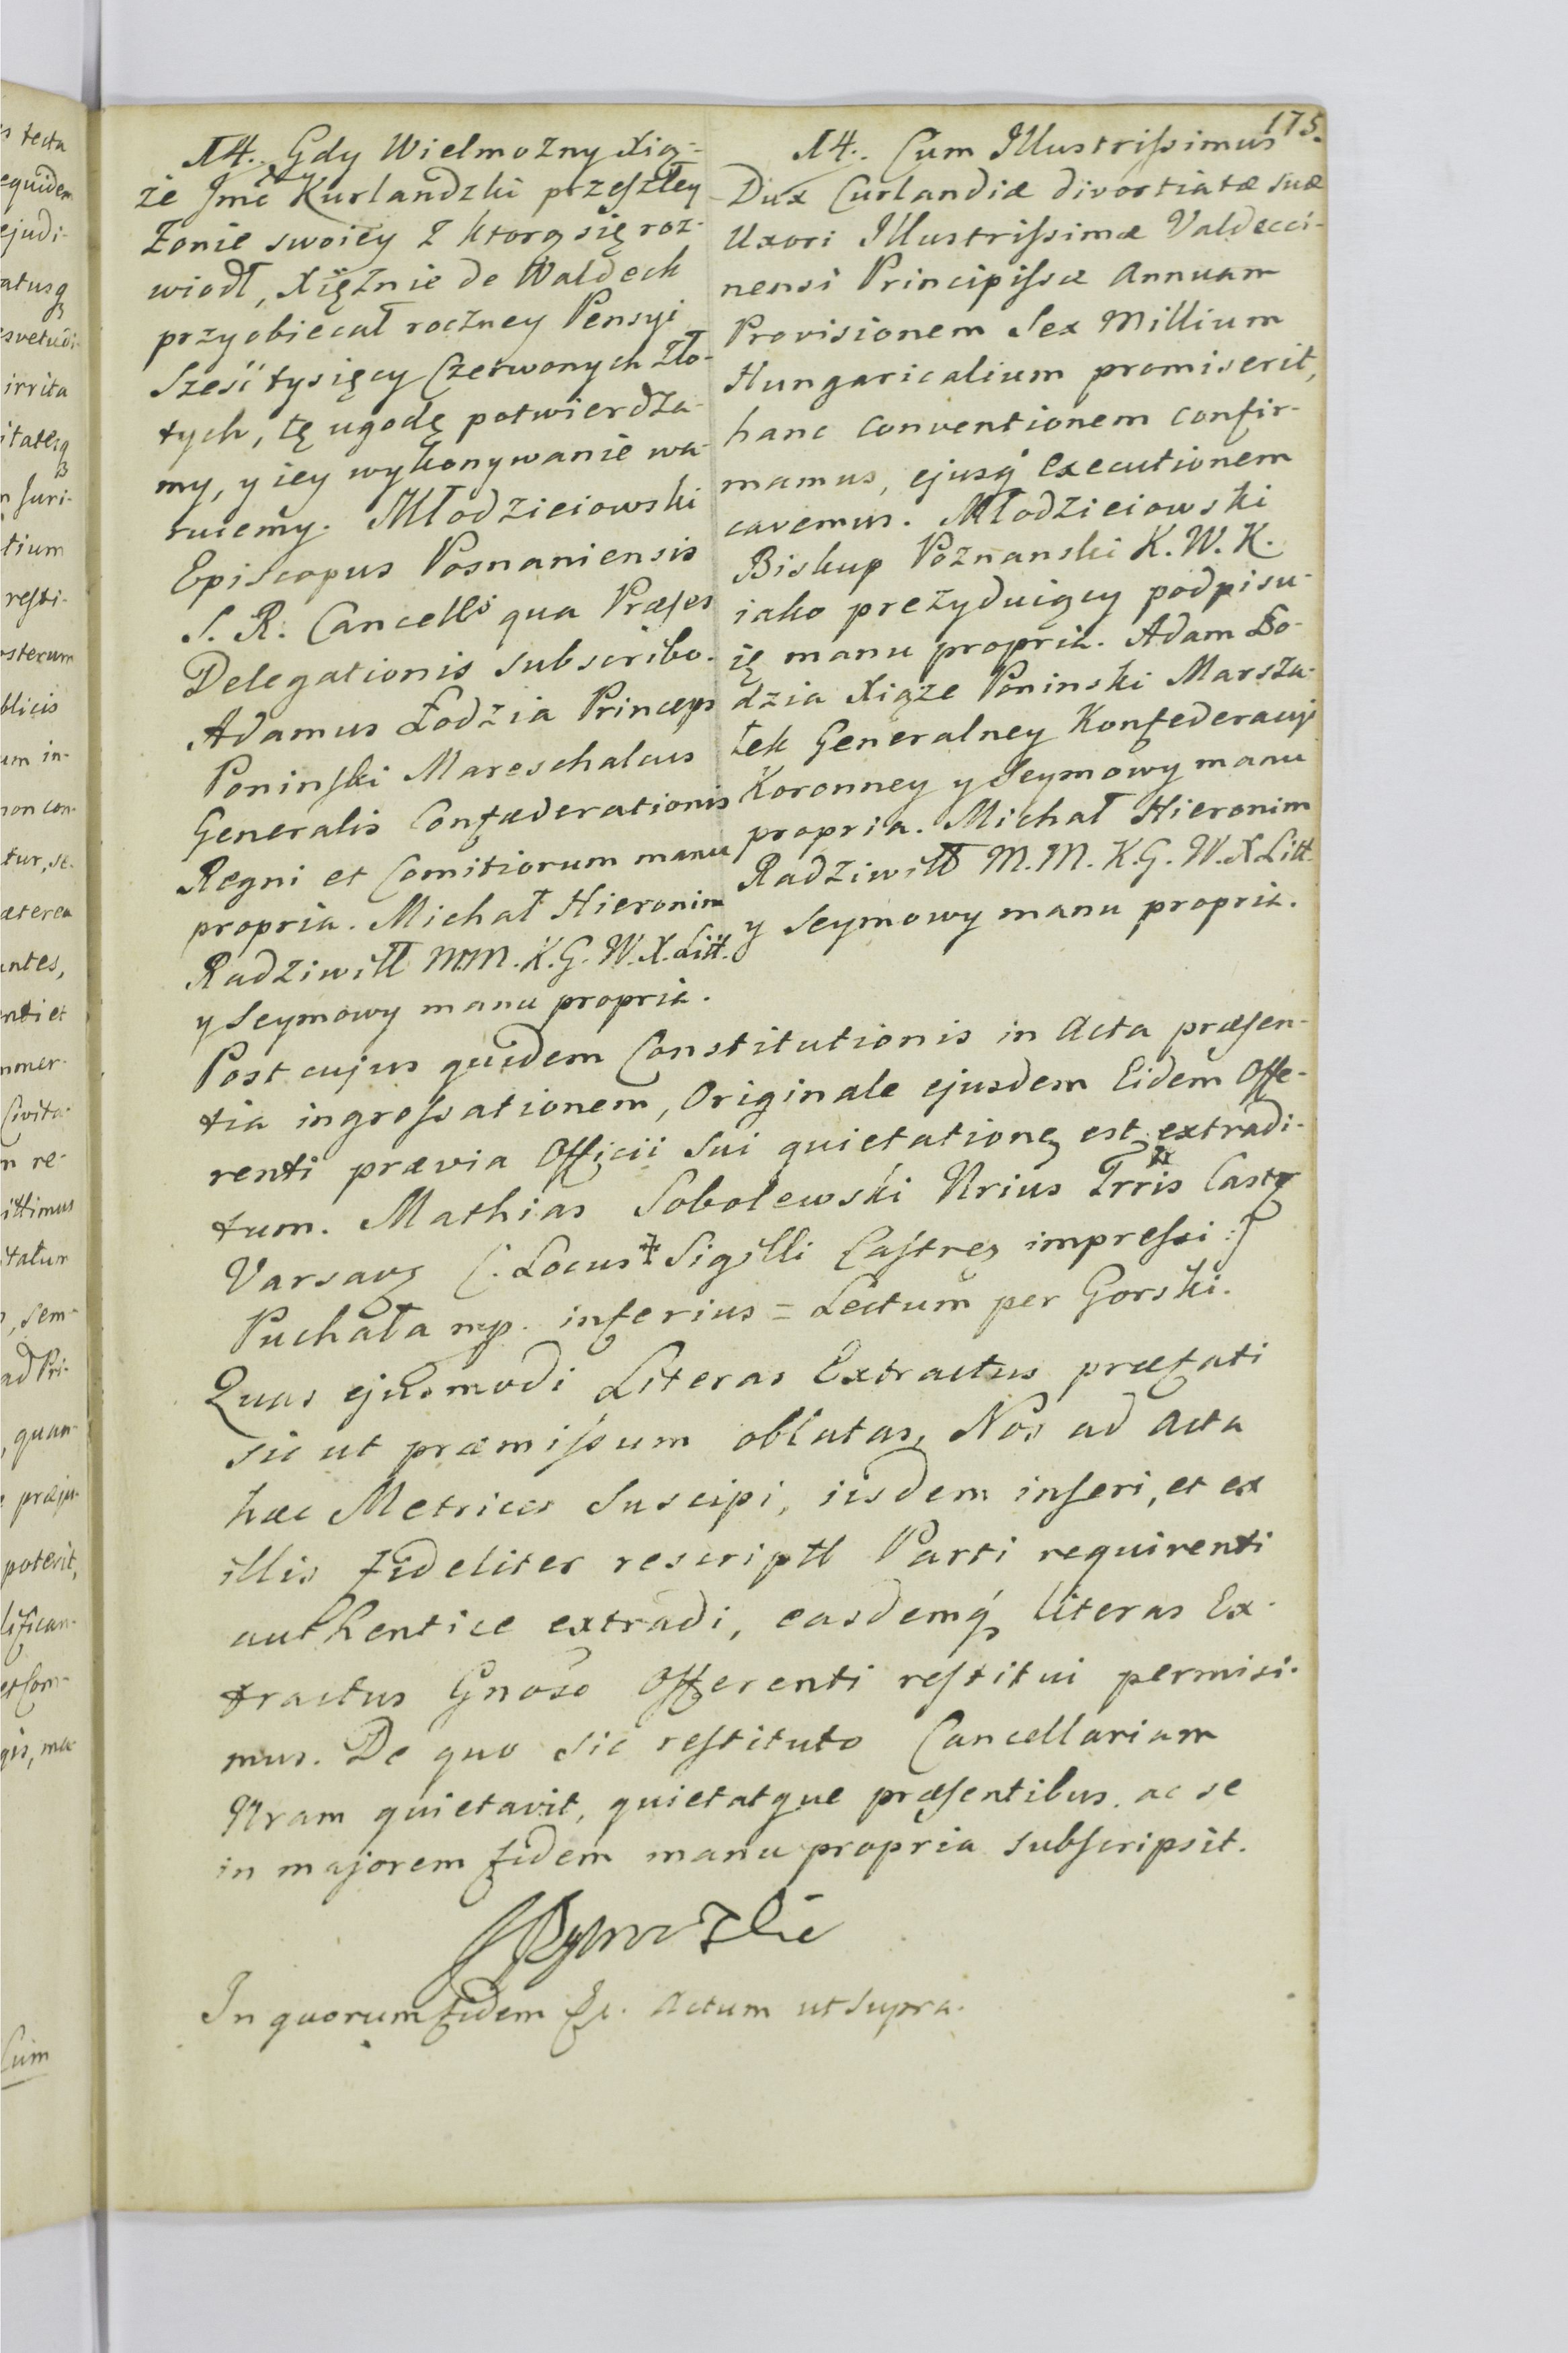 175.
14. Gdy Wielmozny Xią-
że Jmć Kurlandzki przeszłey
Żonie swoiey z ktorą się roz-
wiodł, Xiężnie de Waldech
przyobiecał roczney Pensyi
Sześć tysięcy Czerwonych Zło-
tych, tę ugodę potwierdza-
my, y iey wykonywanie wa-
ruiemy. Młodzieiowski
Episcopus Posnaniensis
S. R. Cancells qua Præses
Delegationis subscribo.
Adamus Łodzia Princeps
Poninski Mareschalcus
Generalis Confæderationis
Regni et Comitiorum manu
propria. Michał Hieronim
Radziwiłł M.M. K.G. W.X. Litt.
y Seymowy manu propria.
14. Cum Illustrissimus
Dux Curlandiæ divortiatæ suæ
Uxori Illustrissimæ Valdecci-
nensi Principissæ Annuam
Provisionem Sex Millium
Hungaricalium promiserit,
hanc Conventionem confir-
mamus, ejusq́ executionem
cavemus. Młodzieiowski
Biskup Poznanski K. W. K.
iako prezyduiący podpisu-
ię manu propria. Adam Ło-
dzia Xiąże Poninski Marsza-
łek Generalney Konfederacyi
Koronney y Seymowy manu
propria. Michał Hieronim
Radziwiłł M.M. K.G. W.X. Litt.
y Seymowy manu propria.
Post cujus quidem Constitutionis in Acta præsen-
tia ingrossationem, Originale ejusdem Eidem Offe-
renti prævia Officii Sui quietatione est extradi-
tum. Mathias Sobolewski Nrius Trris Castr
Varsav (: Locus Sigilli Castren impressi :)
Puchała mp. inferius = Lectum per Gorski.
Quas ejusmodi Literas Extractus præfati
sic ut præmissum oblatas, Nos ad Acta
hæc Metrices Suscipi, iisdem inseri, et ex
illis fideliter rescriptt Parti requirenti
authentice extradi, easdemq́ literas Ex-
tractus Gnoso Offerenti restitui permisi-
mus. De quo Sic restituto Cancellariam
Nram quietavit, quietatque præsentibus. ac se
in majorem fidem manu propria subscripsit.
In quorum fidem &c. Actum ut supra.